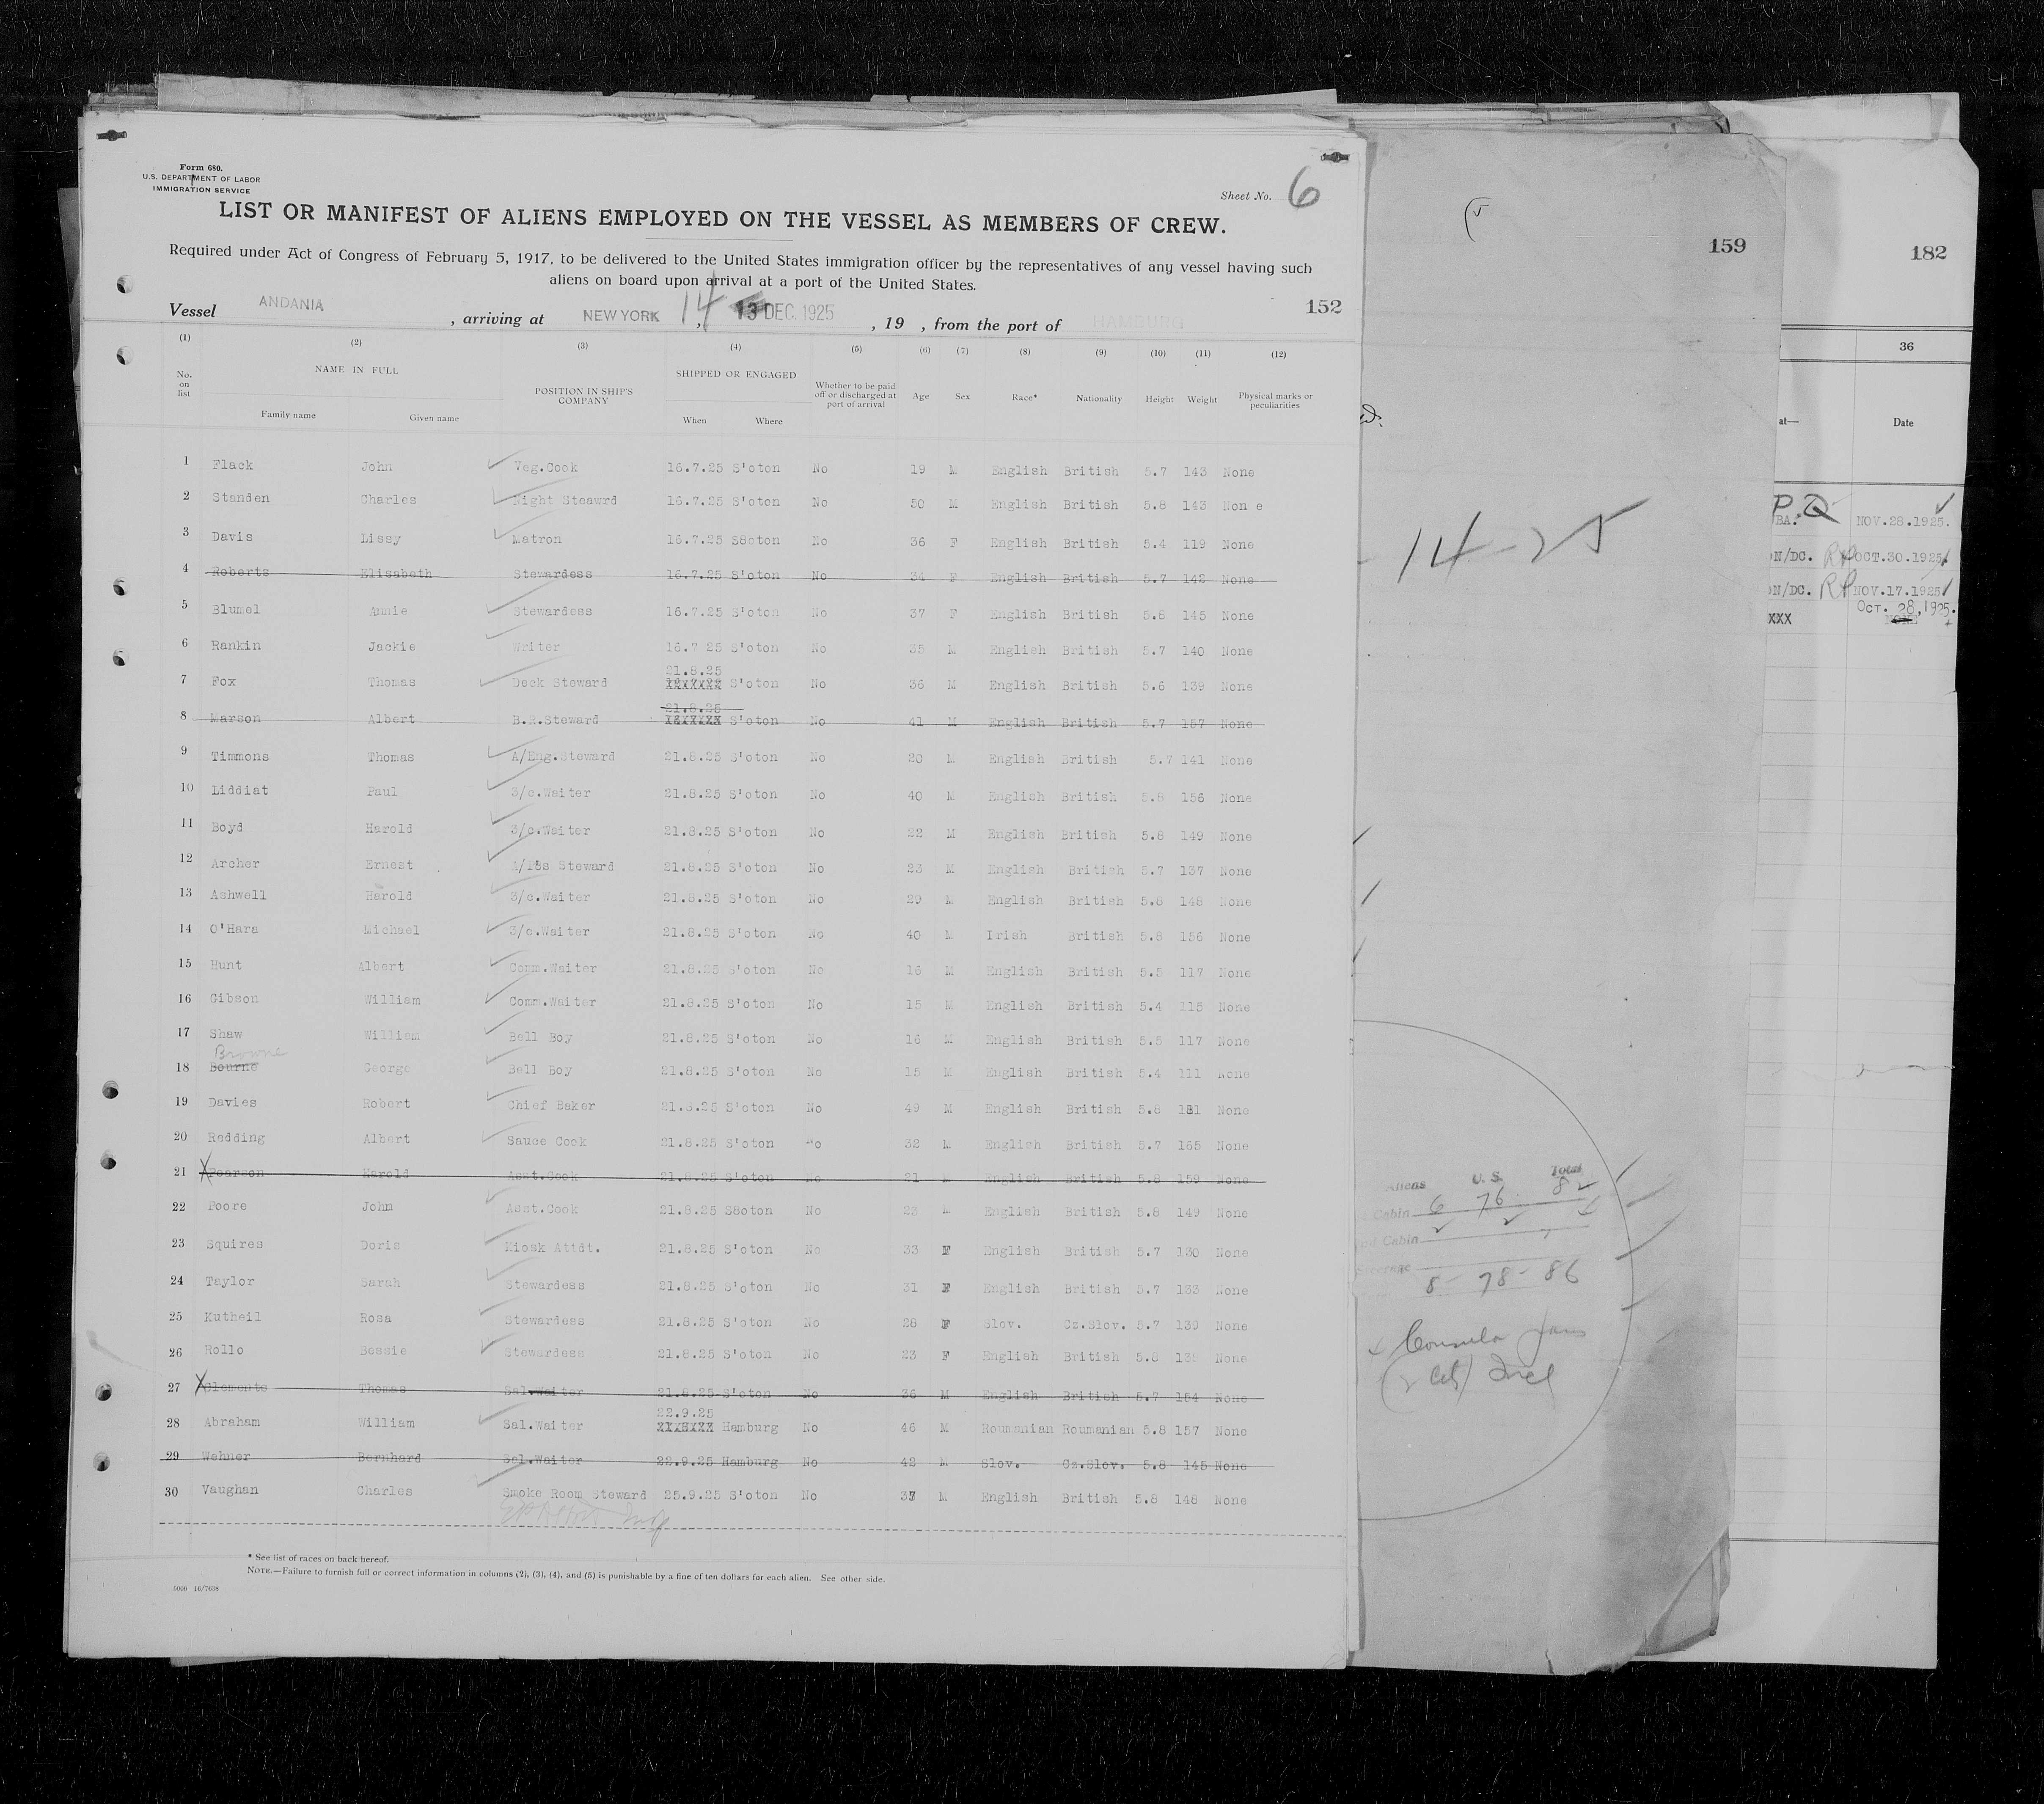 Form 680.
U.S. DEPARTMENT OF LABOR
IMMIGRATION SERVICE
Sheet No. 6
LIST OR MANIFEST OF ALIENS EMPLOYED ON THE VESSEL AS MEMBERS OF CREW.
Required under Act of Congress of February 5, 1917, to be delivered to the United States immigration officer by the representatives of any vessel having such
aliens on board upon arrival at a port of the United States.
152
Vessel ANDANIA , arriving at NEW YORK 14 , 13 DEC. 1925 , 19 , from the port of HAMBURG
(1) (2) (3) (4) (5) (6) (7) (8) (9) (10) (11) (12)
No. on list NAME IN FULL Family name Given name POSITION IN SHIP'S COMPANY SHIPPED OR ENGAGED When Where Whether to be paid off or discharged at port of arrival Age Sex Race* Nationality Height Weight Physical marks or peculiarities
1 Flack John Veg.Cook 16.7.25 S'oton No 19 M English British 5.7 143 None
2 Standen Charles Night Steawrd 16.7.25 S'oton No 50 M English British 5.8 143 Non e
3 Davis Lissy Matron 16.7.25 S8oton No 36 F English British 5.4 119 None
4 Roberts Elisabeth Stewardess 16.7.25 S'oton No 34 F English British 5.7 142 None
5 Blumel Annie Stewardess 16.7.25 S'oton No 37 F English British 5.8 145 None
6 Rankin Jackie Writer 16.7 25 S'oton No 35 M English British 5.7 140 None
21.8.25
7 Fox Thomas Deck Steward XXXXXXX S'oton No 36 M English British 5.6 139 None
21.8.25
8 Marson Albert B.R.Steward XXXXXXX S'oton No 41 M English British 5.7 157 None
9 Timmons Thomas A/Eng.Steward 21.8.25 S'oton No 20 M English British 5.7 141 None
10 Liddiat Paul 3/c.Waiter 21.8.25 S'oton No 40 M English British 5.8 156 None
11 Boyd Harold 3/c.Waiter 21.8.25 S'oton No 22 M English British 5.8 149 None
12 Archer Ernest Steward 21.8.25 S'oton No 23 M English British 5.7 137 None
13 Ashwell Harold 3/c.Waiter 21.8.25 S'oton No 29 M English British 5.8 148 None
14 O'Hara Michael 3/c.Waiter 21.8.25 S'oton No 40 M Irish British 5.8 156 None
15 Hunt Albert Comm.Waiter 21.8.25 S'oton No 16 M English British 5.5 117 None
16 Gibson William Comm.Waiter 21.8.25 S'oton No 15 M English British 5.4 115 None
17 Shaw William Bell Boy 21.8.25 S'oton No 16 M English British 5.5 117 None
Browne
18 Bourne George Bell Boy 21.8.25 S'oton No 15 M English British 5.4 111 None
19 Davies Robert Chief Baker 21.8.25 S'oton No 49 M English British 5.8 181 None
20 Redding Albert Sauce Cook 21.8.25 S'oton No 32 M English British 5.7 165 None
21 Pearson Harold Asst.Cook 21.8.25 S'oton No 21 M English British 5.8 159 None
22 Poore John Asst.Cook 21.8.25 S8oton No 23 M English British 5.8 149 None
23 Squires Doris Kiosk Attdt. 21.8.25 S'oton No 33 F English British 5.7 130 None
24 Taylor Sarah Stewardess 21.8.25 S'oton No 31 F English British 5.7 133 None
25 Kutheil Rosa Stewardess 21.8.25 S'oton No 28 F Slov. Cz.Slov. 5.7 139 None
26 Rollo Bessie Stewardess 21.8.25 S'oton No 23 F English British 5.8 None
27 Clements Thomas Sal.waiter 21.8.25 S'oton No 36 M English British 5.7 154 None
22.9.25
28 Abraham William Sal.Waiter XXXXXXX Hamburg No 46 M Roumanian Roumanian 5.8 157 None
29 Wehner Bernhard Sal.Waiter 22.9.25 Hamburg No 42 M Slov. Cz.Slov. 5.8 145 None
30 Vaughan Charles Smoke Room Steward 25.9.25 S'oton No 37 M English British 5.8 148 None
* See list of races on back hereof.
NOTE.—Failure to furnish full or correct information in columns (2), (3), (4), and (5) is punishable by a fine of ten dollars for each alien. See other side.
5000 16/7628
159
14-25
Aliens U. S. Total
Cabin 6 76 82
2nd Cabin
Steerage
8 - 78 - 86
182
36
at— Date
P.D
BA. NOV.28.1925.
ON/DC. OCT.30.1925
ON/DC. NOV.17.1925
OCT. 28, 1925.
XXX NONE